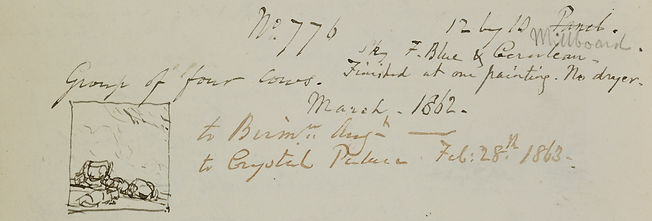 No. 776
12 by 18 Panel.
Millboard
Sky F. Blue & Cerulean.
Group of four cows.
Finished at one painting. No dryer.
March. 1862.
to Birmm. Augt
to Crystal Palace Feb: 28th 1863.